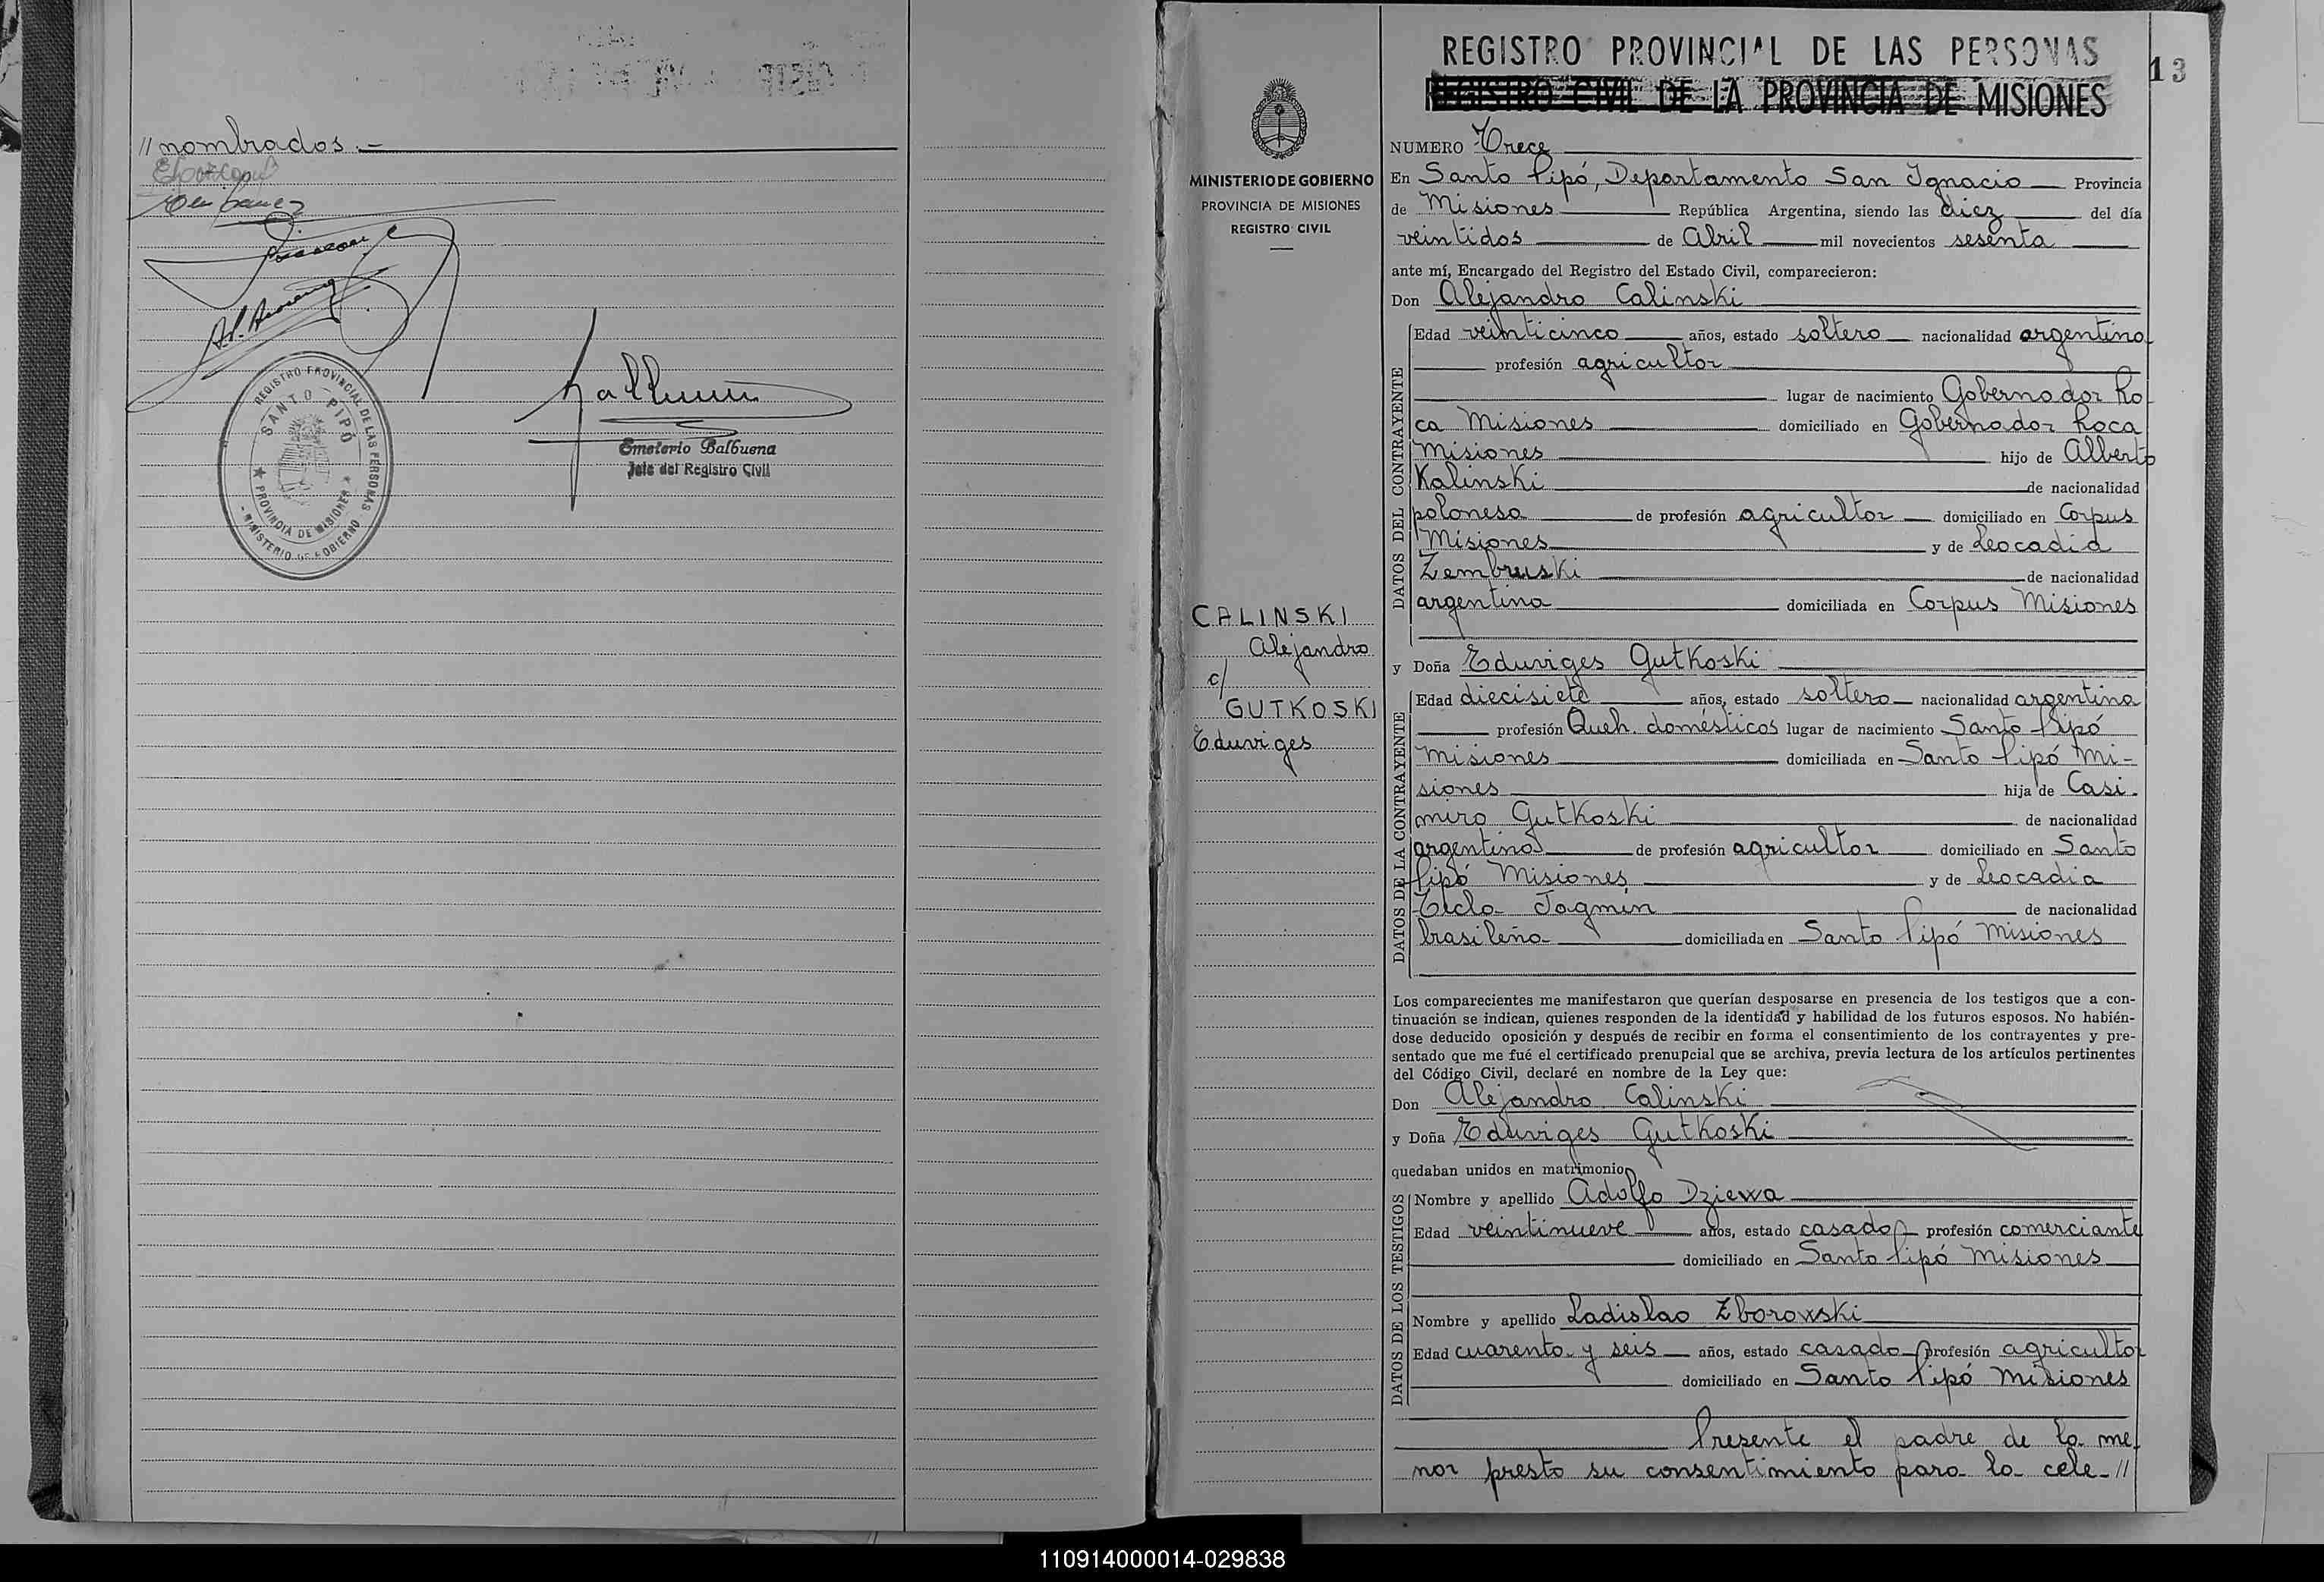 // nombrados.-
Emeterio Balbuena
Jefe del Registro Civil
REGISTRO PROVINCIAL DE LAS PERSONAS
SANTO PIPÓ
PROVINCIA DE MISIONES
MINISTERIO DE GOBIERNO
MINISTERIO DE GOBIERNO
PROVINCIA DE MISIONES
REGISTRO CIVIL
CALINSKI
Alejandro
c/
GUTKOSKI
Eduviges
REGISTRO PROVINCIAL DE LAS PERSONAS
13
REGISTRO CIVIL DE LA PROVINCIA DE MISIONES
NUMERO Trece
En Santo Pipó, Departamento San Ignacio Provincia
de Misiones República Argentina, siendo las diez del día
veintidos de Abril mil novecientos sesenta
ante mí, Encargado del Registro del Estado Civil, comparecieron:
Don Alejandro Calinski
DATOS DEL CONTRAYENTE
Edad veinticinco años, estado soltero nacionalidad argentina
profesión agricultor
lugar de nacimiento Gobernador Ro
ca Misiones domiciliado en Gobernador Roca
Misiones hijo de Alberto
Kalinski de nacionalidad
polonesa de profesión agricultor domiciliado en Corpus
Misiones y de Leocadia
Zembruski de nacionalidad
argentina domiciliada en Corpus Misiones
y Doña Eduviges Gutkoski
DATOS DE LA CONTRAYENTE
Edad diecisiete años, estado soltero nacionalidad argentina
profesión Queh. domésticos lugar de nacimiento Santo Pipó
Misiones domiciliada en Santo Pipó Mi-
siones hija de Casi-
miro Gutkoski de nacionalidad
argentina de profesión agricultor domiciliado en Santo
Pipó Misiones y de Leocadia
Tecla Jagmin de nacionalidad
brasileña domiciliada en Santo Pipó Misiones
Los comparecientes me manifestaron que querían desposarse en presencia de los testigos que a con-
tinuación se indican, quienes responden de la identidad y habilidad de los futuros esposos. No habién-
dose deducido oposición y después de recibir en forma el consentimiento de los contrayentes y pre-
sentado que me fué el certificado prenupcial que se archiva, previa lectura de los artículos pertinentes
del Código Civil, declaré en nombre de la Ley que:
Don Alejandro Calinski
y Doña Eduviges Gutkoski
quedaban unidos en matrimonio
DATOS DE LOS TESTIGOS
Nombre y apellido Adolfo Dziewa
Edad veintinueve años, estado casado profesión comerciante
domiciliado en Santo Pipó Misiones
Nombre y apellido Ladislao Zborowski
Edad cuarenta y seis años, estado casado profesión agricultor
domiciliado en Santo Pipó Misiones
Presente el padre de la me-
nor presto su consentimiento para la cele-//
110914000014-029838